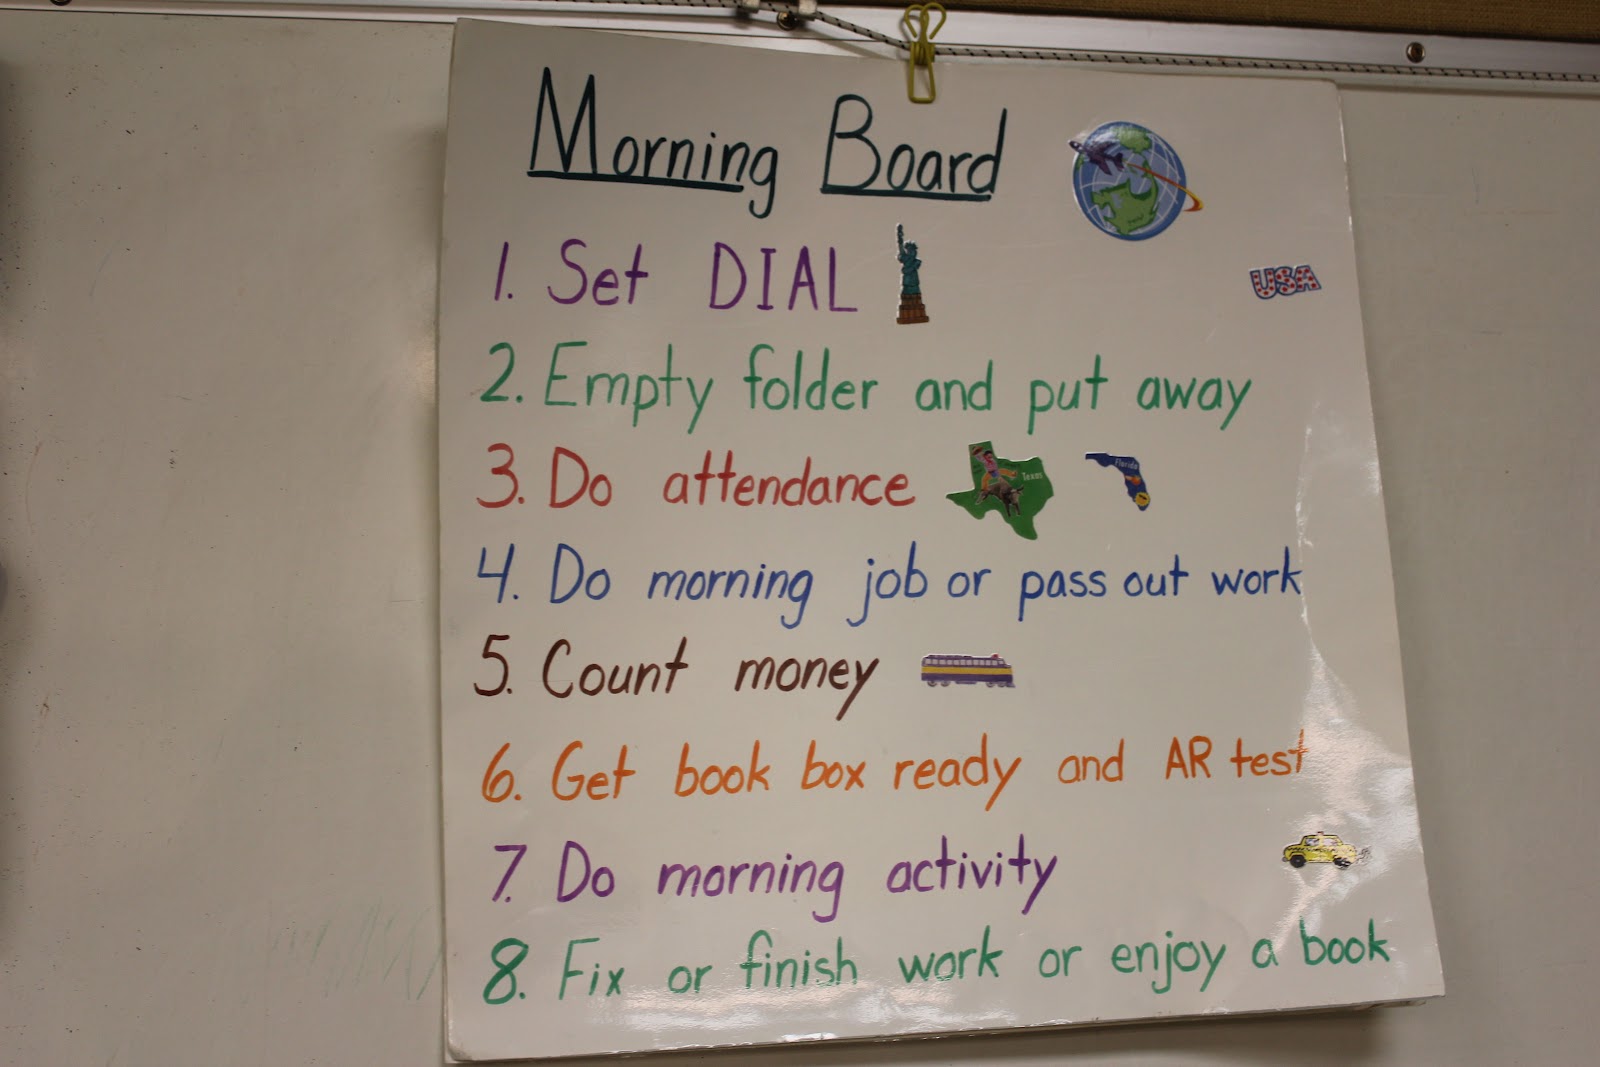 Morning Board
USA
1. Set DIAL
2. Empty folder and put away
3. Do attendance
Texas
Florida
4. Do morning job or pass out work
5. Count money
6. Get book box ready and AR test
7. Do morning activity
8. Fix or finish work or enjoy a book